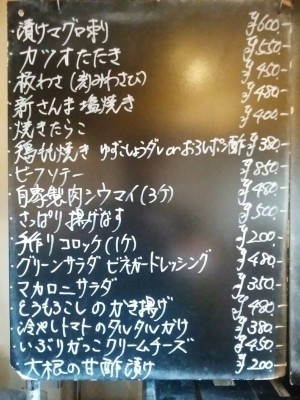 ・漬けマグロ刺 ¥600-
・カツオたたき ¥550-
・板わさ(刻みわさび) ¥450-
・新さんま塩焼き ¥480-
・焼きたらこ ¥400-
・鶏もも焼き ゆずこしょうダレorおろしポン酢 ¥380-
・ビーフソテー ¥850-
・自家製肉シウマイ(3ケ) ¥480-
・さっぱり揚げなす ¥500-
・手作りコロッケ(1ケ) ¥200-
・グリーンサラダ ビネガードレッシング ¥480-
・マカロニサラダ ¥350-
・とうもろこしのかき揚げ ¥480-
・冷やしトマトのタルタルがけ ¥380-
・いぶりがっこクリームチーズ ¥450-
・大根の甘酢漬け ¥200-